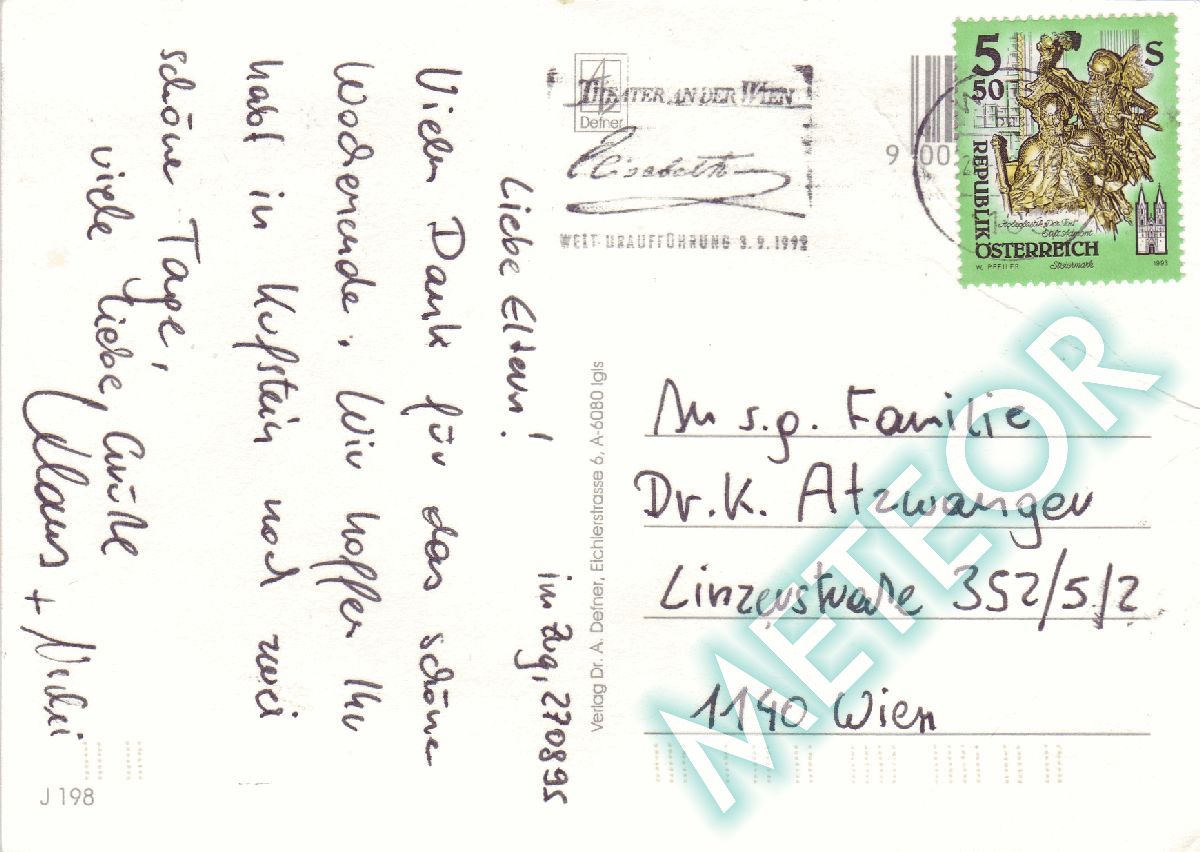 Liebe Eltern!
im Zug, 270895
Vielen Dank für das schöne
Wochenende. Wir hoffen Ihr
habt in Kufstein noch zwei
schöne Tage,
viele liebe Grüße
Klaus +
J 198
Verlag Dr. A. Defner, Eichlerstrasse 6, A-6080 Igls
Defner
THEATER AN DER WIEN
Elisabeth
WELT-URAUFFÜHRUNG 3.9.1992
9 00
5 50 S
REPUBLIK
ÖSTERREICH
Stift Admont
Steiermark
W. PFEILER
1993
An s.g. Familie
Dr. K. Atzwanger
Linzerstraße 352/5/2
1140 Wien
METEOR